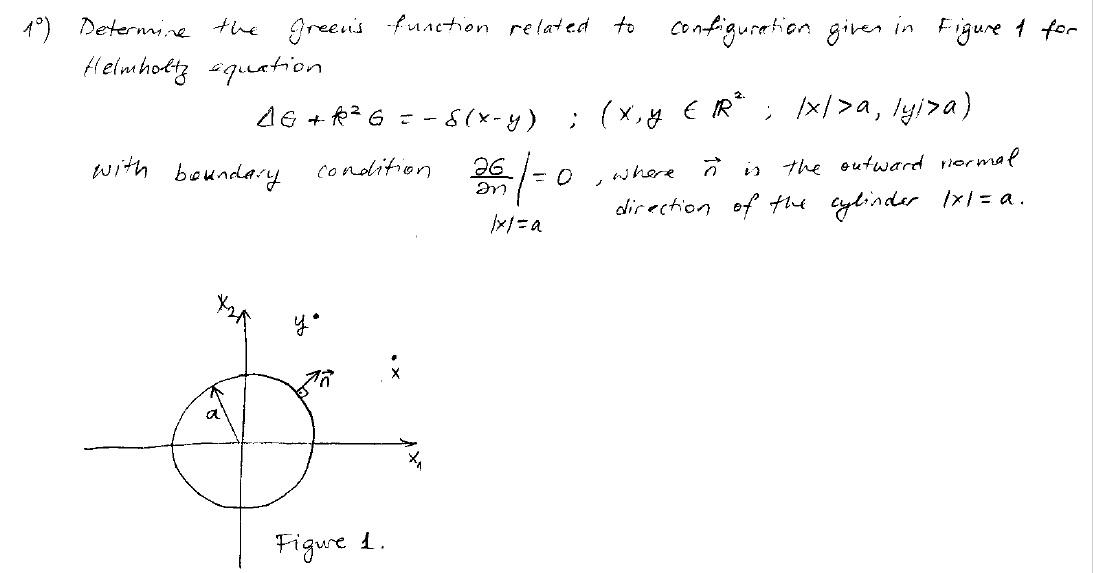 1°) Determine the Green's function related to configuration given in Figure 1 for
Helmholtz equation
ΔG + k² G = - δ(x-y) ; (x,y ∈ ℝ² ; |x|>a, |y|>a)
with boundary condition ∂G/∂n | = 0 , where n⃗ is the outward normal
|x|=a
direction of the cylinder |x| = a.
x₂
y
n⃗
x
a
x₁
Figure 1.